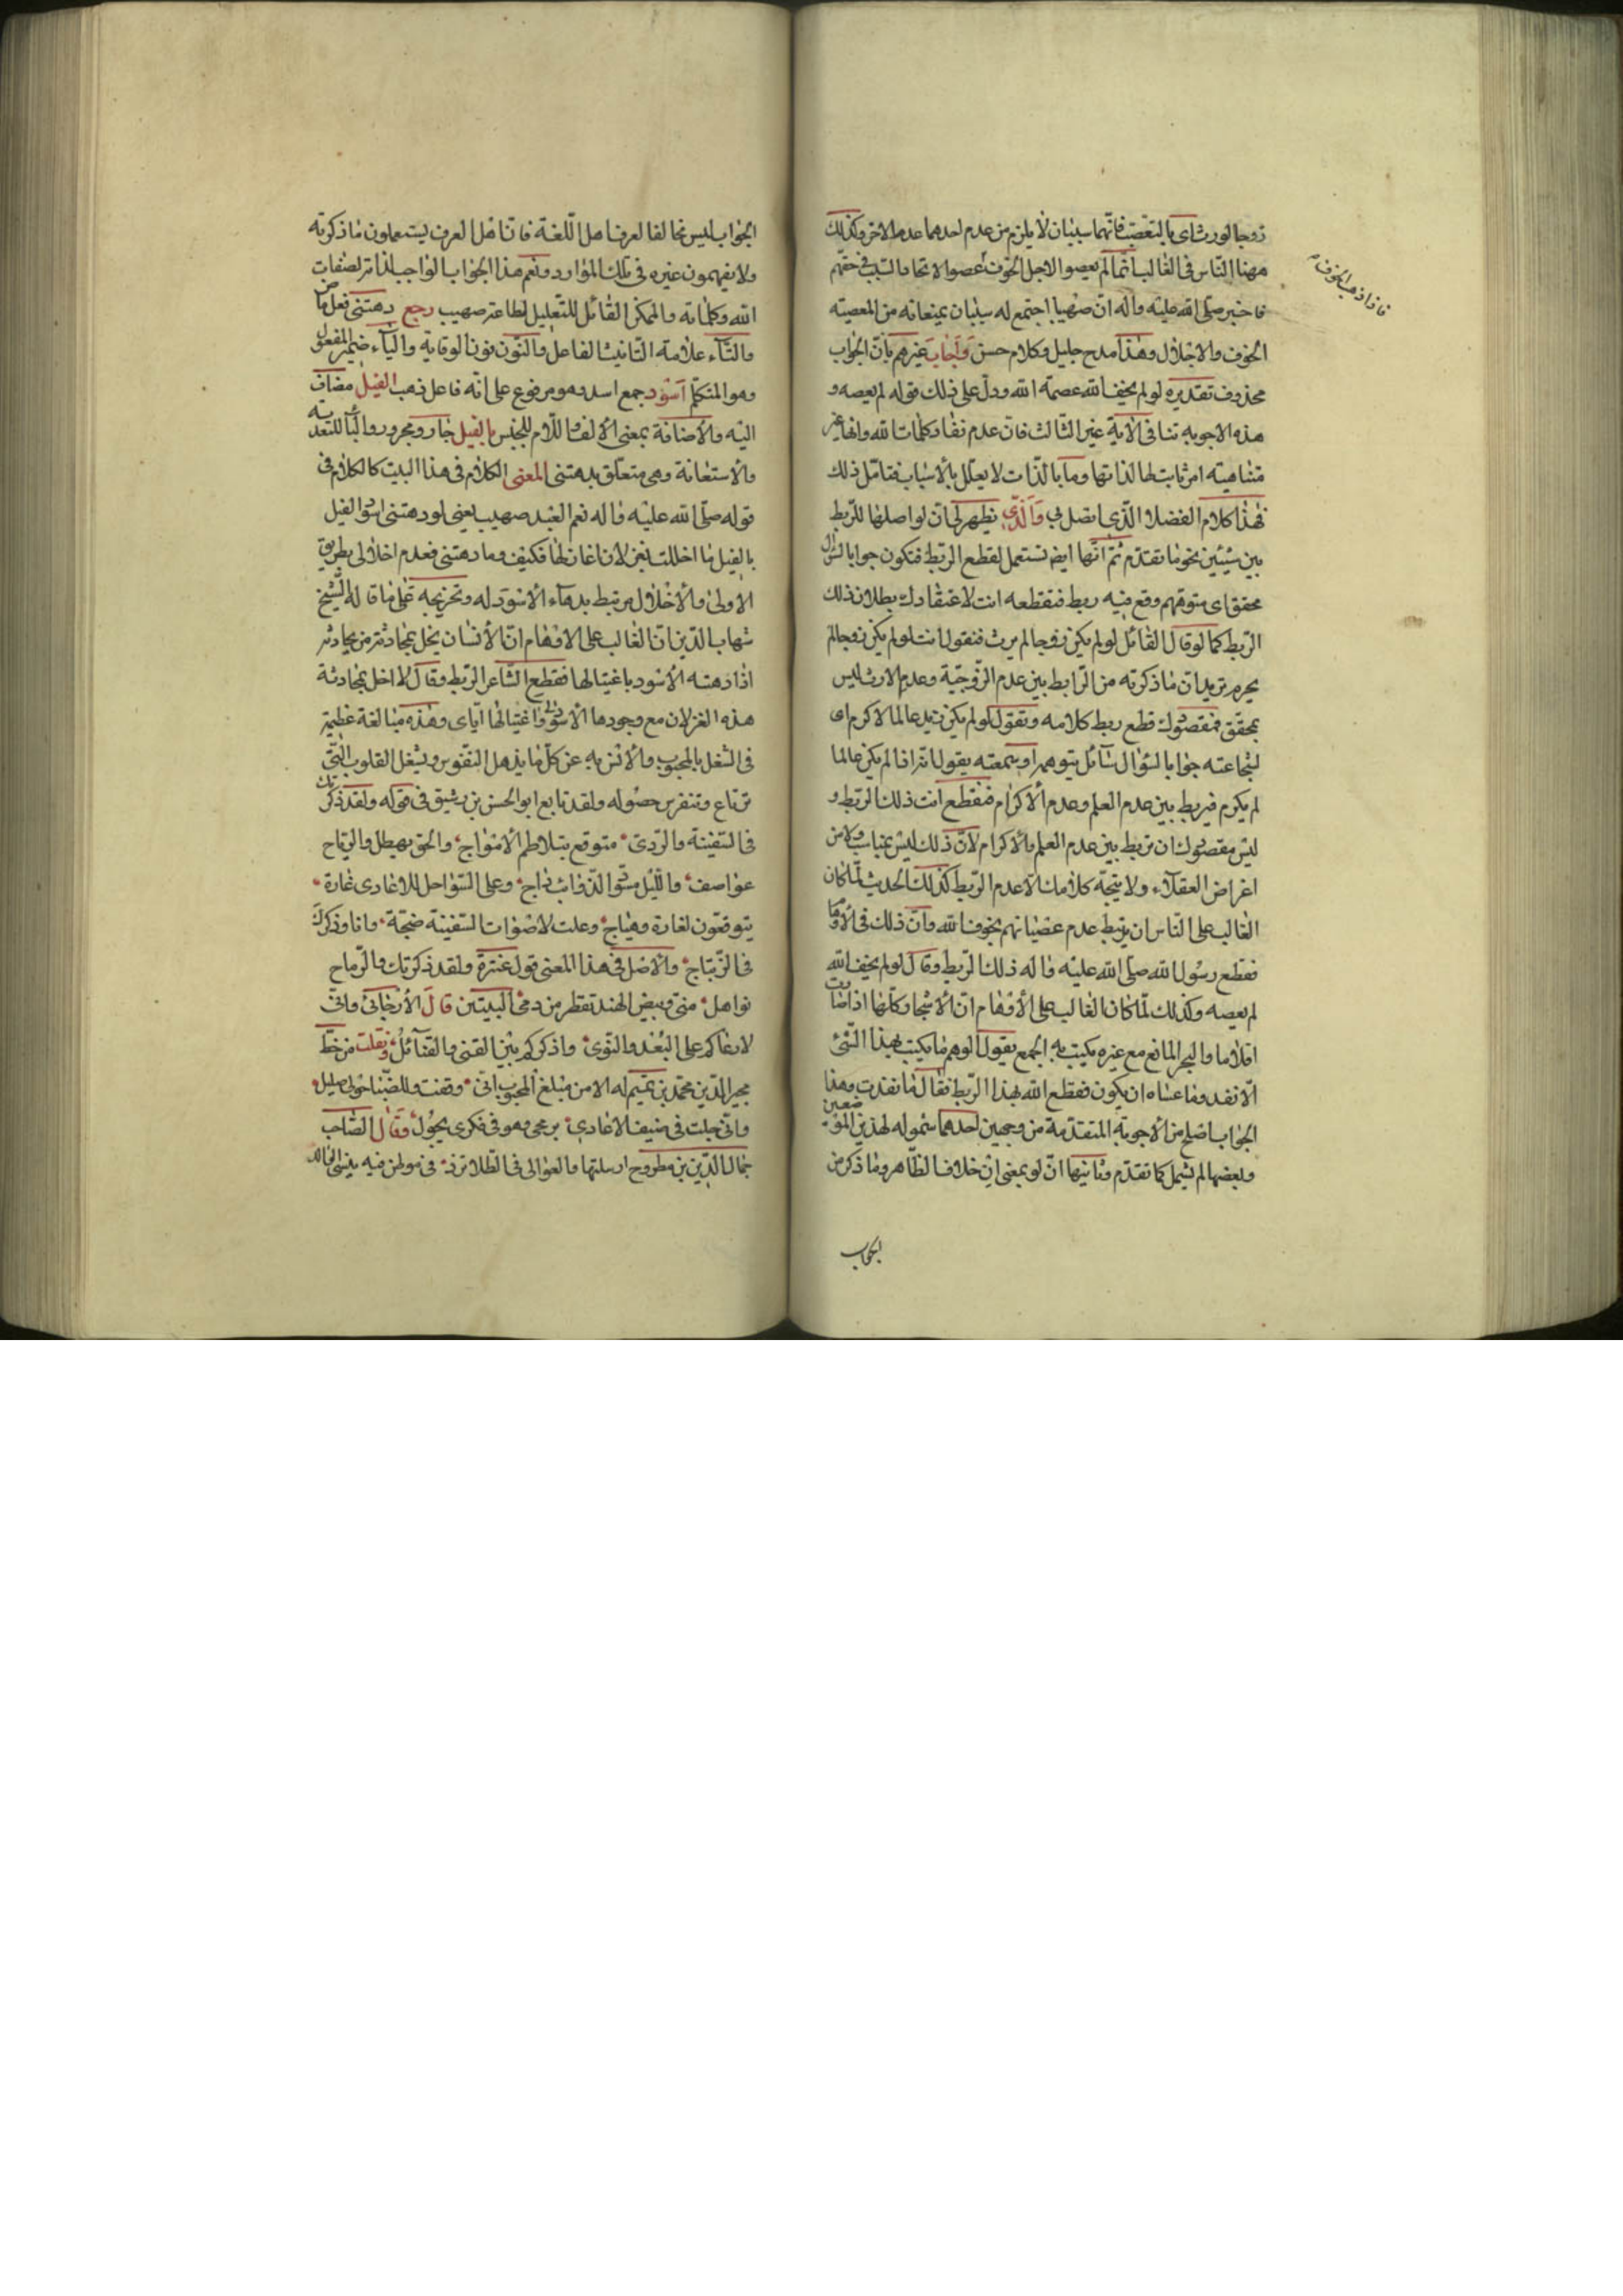 زوجا لورث اى بالتعصّب فانّهما سببان لا يلزم من عدم احدهما عدم الاخر وكذلك
ههنا النّاس فى الغالب انّما لم يعصوا لاجل الخوف عصوا لاتحاد السّبب فى حقّهم
فاذا ذهب الخوف
فاخبر صلّى الله عليه واله انّ صهيبا اجتمع له سببان يمنعانه من المعصيته
الخوف والاجلال وهذا مدح جليل وكلام حسن وَاَجابَ غيرهم بانّ الجواب
محذوف تقديره لو لم يخف الله عصمه الله ودلّ على ذلك قوله لم يعصه و
هذه الاجوبه تنافى الآية غير الثالث فانّ عدم نفاد كلمات الله وانها غير
متناهيته امر ثابت لها لذاتها وما بالذّات لا يعلّل بالأسباب فتامّل ذلك
فهذا كلام الفضلاء الّذى اتصل بى وَالّذى يظهر لى انّ لو اصلها للرّبط
بين شيئين نحو ما تقدّم ثمّ انّها ايضا تستعمل لقطع الرّبط فتكون جوابا لسؤال
محقق اى متوهّم وقع فيه ربط فتقطعه انت لاعتقادك بطلان ذلك
الرّبط كما لو قال القائل لو لم يكن زوجا لم يرث فتقول انت لو لم يكن زوجا لم
يحرم تريد انّ ما ذكرته من الرّابط بين عدم الزّوجيّة وعدم الارث ليس
بمحقق فمقصودك قطع ربط كلامه وتقول لو لم يكن زيد عالما لاكرم اى
لشجاعته جوابا لسؤال سائل يتوهم او سمعته يقول انّه اذا لم يكن عالما
لم يكرم فيربط بين عدم العلم وعدم الاكرام فتقطع انت ذلك الرّبط و
ليس مقصودك ان تربط بين عدم العلم والاكرام لانّ ذلك ليس بمناسب ولا من
اغراض العقلاء ولا يتجه كلامك الّا عدم الرّبط كذلك الحديث لمّا كان
الغالب على النّاس ان يرتبط عدم عصيانهم بخوف الله وانّ ذلك فى الأوهام
فقطع رسول الله صلّى الله عليه واله ذلك الرّبط وقال لو لم يخف الله
لم يعصه وكذلك لمّا كان الغالب على الأوهام انّ الأشجار كلّها اذا صارت
اقلاما والبحر المانع مع غيره يكتب به الجمع يقول الوهم ما يكتب بهذا الشّئ
الّا نفد وما عساه ان يكون فقطع الله بهذا الرّبط فقال ما نفدت وهذا
الجواب اصلح من الأجوبة المتقدّمة من وجهين احدهما شموله لهذين الموضعين
وبعضها لم يشمل كما تقدّم وثانيها انّ لو بمعنى ان خلاف الظّاهر وما ذكر من
الجواب
الجواب ليس مخالفا لعرف اهل اللّغة فانّ اهل العرف يستعملون ما ذكرته
ولا يفهمون غيره فى تلك الموارد ونعم هذا الجواب الواجب لذاته لصفات
الله وكلماته والممكن القائل للتّعليل لطاعة صهيب رجع دهتنى فعل ماض
والتّاء علامة التّانيث الفاعل والنّون نون الوقاية والياء ضمير المفعول
وهو المتكلّم اُسُود جمع اسد وهو مرفوع على انّه فاعل ذهب الغيل مضاف
اليه والأضافة بمعنى الألف واللّام للجنس بالغيل جار ومجرور والباء للتعديه
والأستعانة وهى متعلّق بدهتنى المعنى الكلام فى هذا البيت كالكلام فى
قوله صلّى الله عليه واله نعم العبد صهيب يعنى لو دهتنى اسود الغيل
بالغيل ما اخللت بغزلان اغازلها فكيف وما دهتنى فعدم اخلالى بطريق
الاولى والأخلال مرتبط بدهاء الأسود له وتخريجه على ما قاله الشّيخ
شهاب الدّين انّ الغالب على الافهام انّ الأنسان يخل بمحادثة من يحادثه
اذا دهته الأسود باغتيالها فقطع الشّاعر الرّبط وقال لا اخل بمحادثة
هذه الغزلان مع وجود هذا الأسود واغتيالها ايّاى وهذه مبالغة عظيمة
فى الشغل بالمحبوب والأنس به عن كلّ ما يذهل النّفوس ويشغل القلوب الّتى
ترتاع وتنفر من حصوله ولقد تابع ابو الحسن بن رشيق فى قوله ولقد ذكرتك
فى السّفينة والرّدى ٠ متوقع بتلاطم الأمواج ٠ والجوّ يهطل والرّياح
عواصف ٠ واللّيل مسودّ الذّوائب داج ٠ وعلى السّواحل للاعادى غارة ٠
يتوقّعون لغارة وهياج ٠ وعلت لاصوات السّفينة ضجّة ٠ وانا وذكرك
فى الذّ تناج ٠ والاصل فى هذا المعنى قول عنترة ولقد ذكرتك والرّماح
نواهل ٠ منّى وبيض الهند تقطر من دمى البيتين قَالَ الأرّجانى وانّى
لارعاكم على البعد والنّوى ٠ واذكركم بين القنى والقنابل ٠ ونقلت من خطّ
مجير الدّين محمّد بن تميم له الا من مبلغ المحبوب انّى ٠ وقفت وللظّبا حولى صليل ٠
وانّى جلت فى صيف الاعادى ٠ برمحى وهو فى فكرى يجول ٠ وَقَالَ الصّاحب
جمال الدّين بن مطروح ارسلتها والعوالى فى الطلا ترد ٠ فى موطن فيه ينسى الوالد